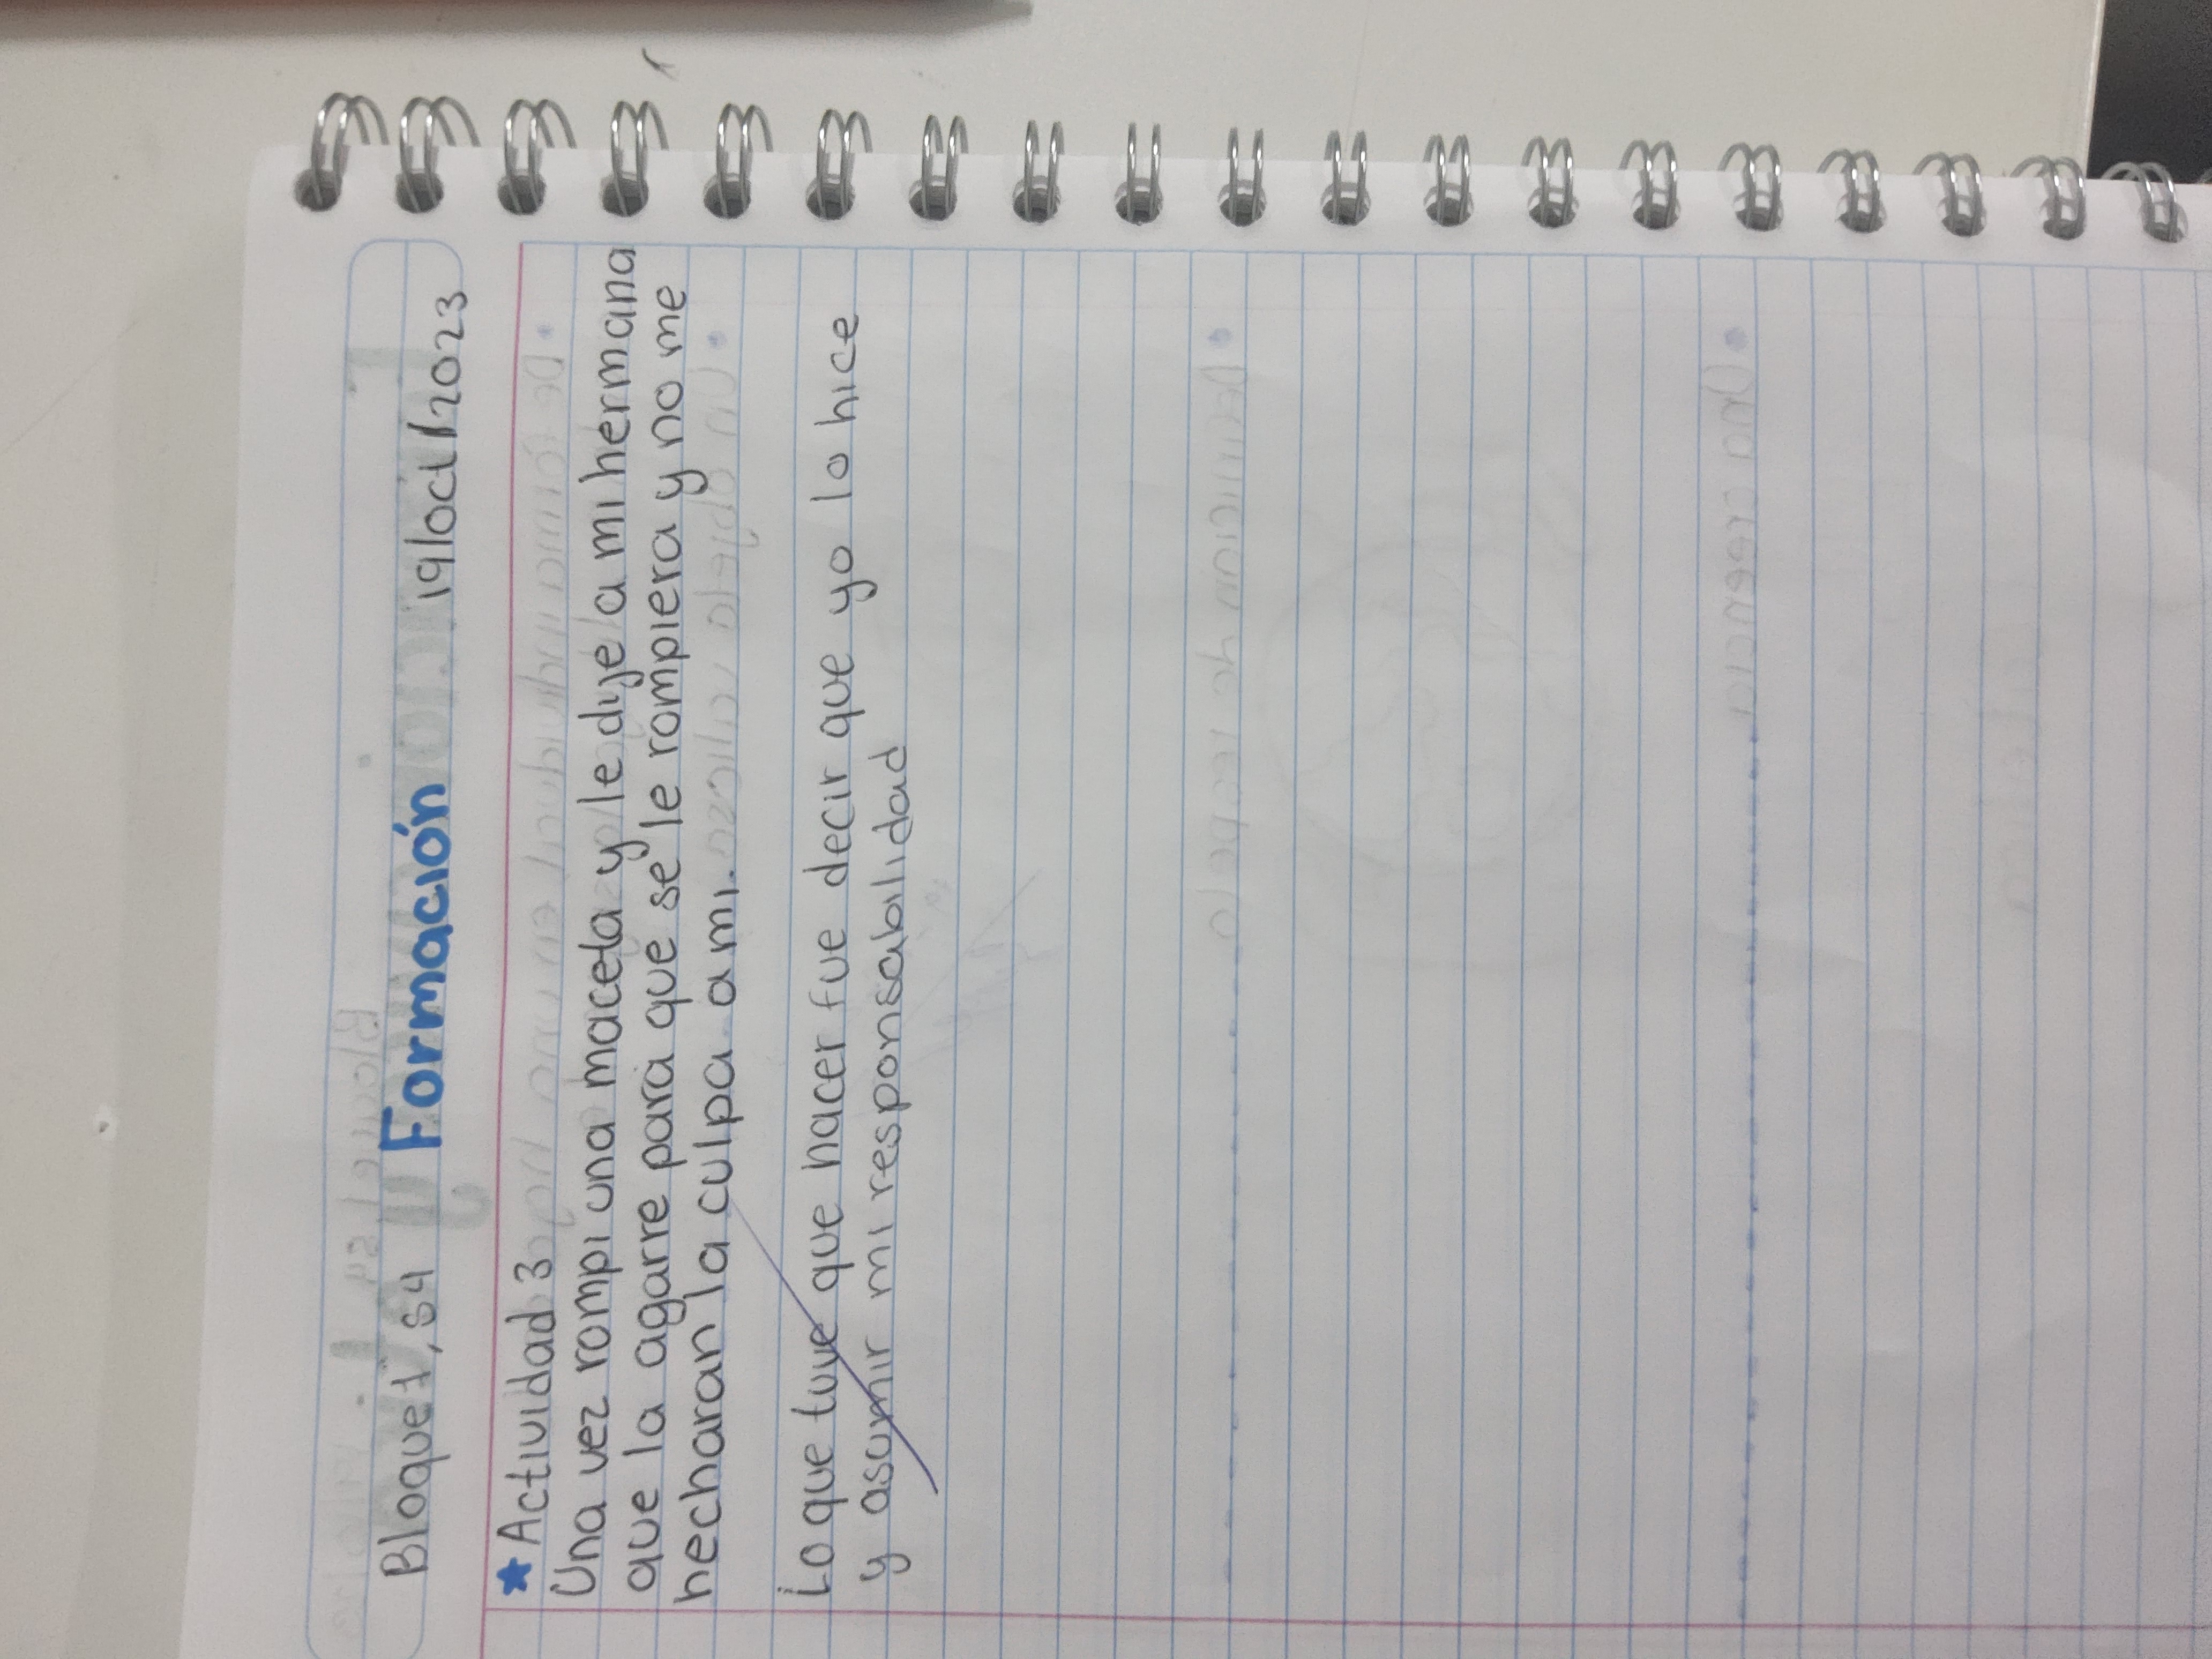 Bloque 1, S4 Formación 19/oct/2023
★ Actividad 3
Una vez rompi una maceta y le dije a mi hermana
que la agarre para que se le rompiera y no me
hecharan la culpa a mi.
Lo que tuve que hacer fue decir que yo lo hice
y asumir mi responsabilidad